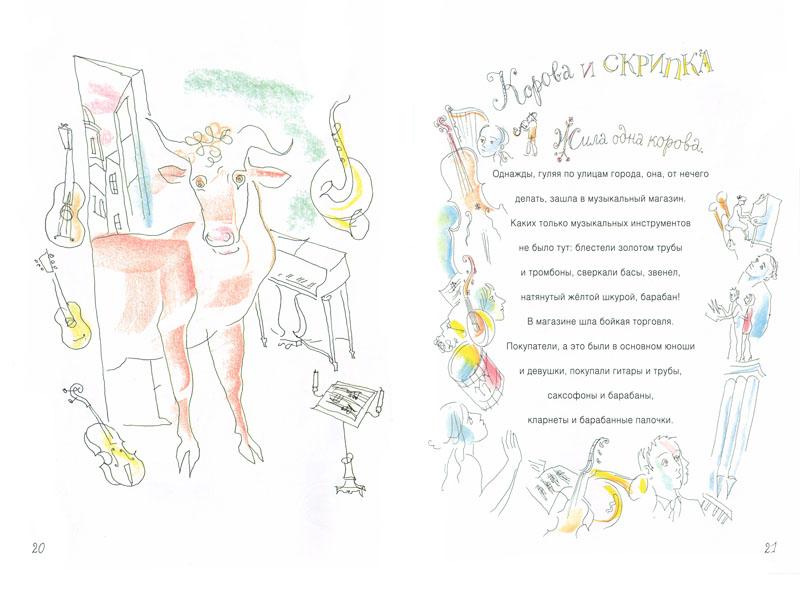 Корова и СКРИПКА
Жила одна корова.
Однажды, гуляя по улицам города, она, от нечего
делать, зашла в музыкальный магазин.
Каких только музыкальных инструментов
не было тут: блестели золотом трубы
и тромбоны, сверкали басы, звенел,
натянутый жёлтой шкурой, барабан!
В магазине шла бойкая торговля.
Покупатели, а это были в основном юноши
и девушки, покупали гитары и трубы,
саксофоны и барабаны,
кларнеты и барабанные палочки.
20
21